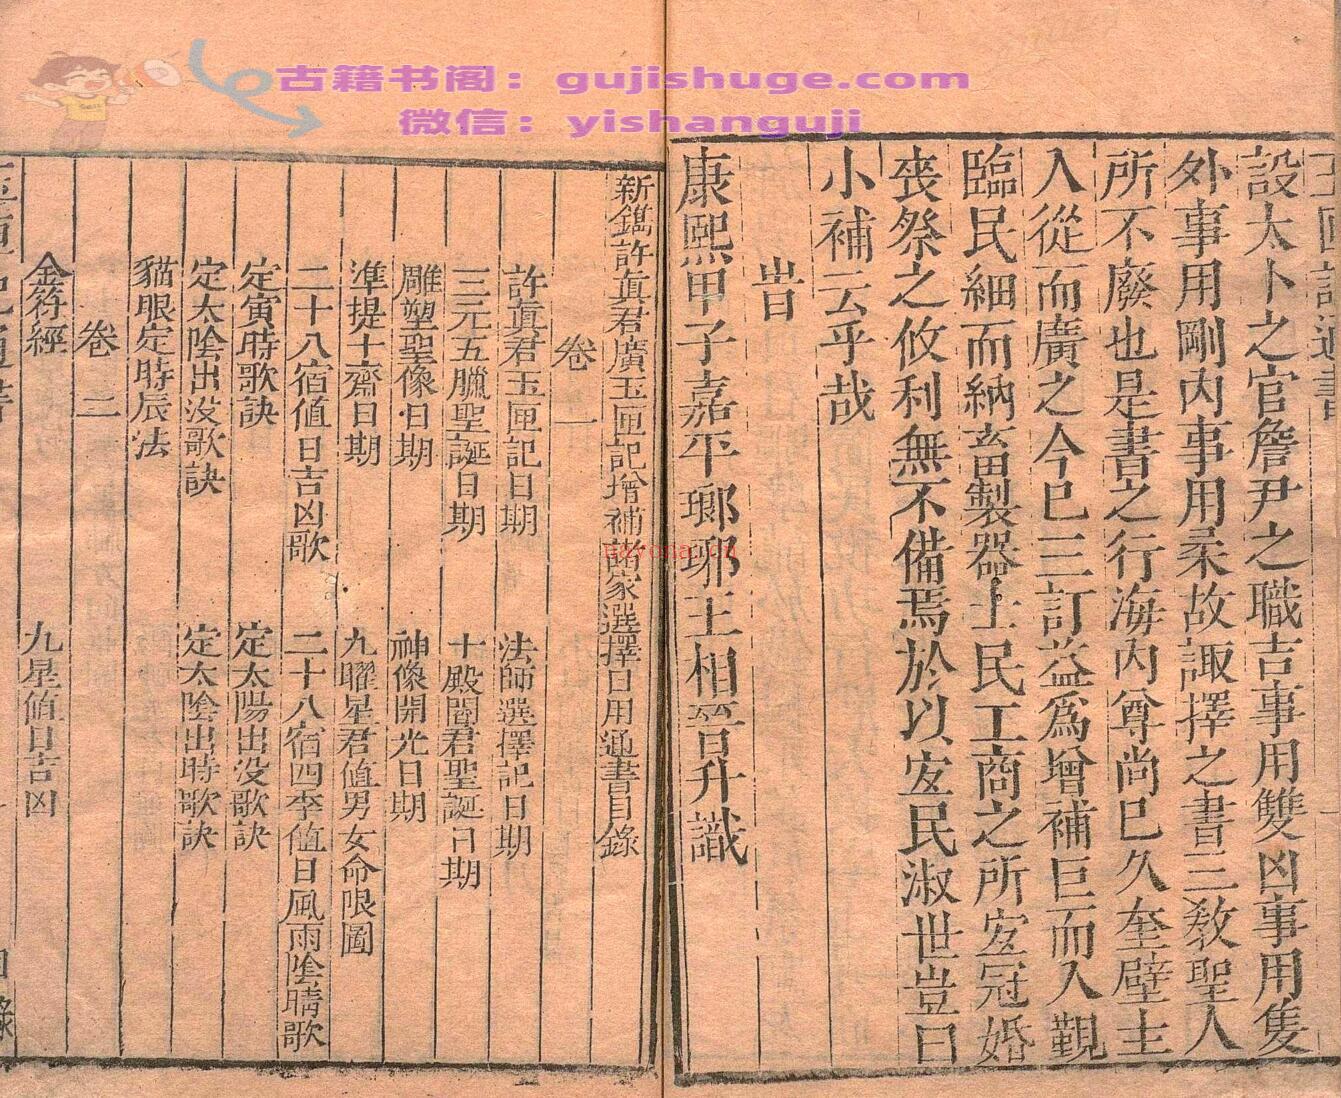 古籍书阁：gujishuge.com
微信：yishanguji
設太卜之官詹尹之職吉事用雙凶事用隻
外事用剛内事用柔故諏擇之書三敎聖人
所不廢也是書之行海内尊尚已久奎壁主
人從而廣之今已三訂益爲增補巨而入覲
臨民細而納畜製器士民工商之所宐冠婚
丧祭之攸利無不備焉於以宐民淑世豈曰
小補云乎哉
旹
康熙甲子嘉平瑯琊王相晉升識
新鐫許眞君廣玉匣記增補諸家選擇日用通書目錄
卷一
許眞君玉匣記日期 法師選擇記日期
三元五臘聖誕日期 十殿閻君聖誕日期
雕塑聖像日期 神像開光日期
準提十齋日期 九曜星君值男女命限圖
二十八宿值日吉凶歌 二十八宿四季值日風雨陰晴歌
定寅時歌訣 定太陽出没歌訣
定太陰出没歌訣 定太陰出時歌訣
貓眼定時辰法
卷二
金符經 九星值日吉凶